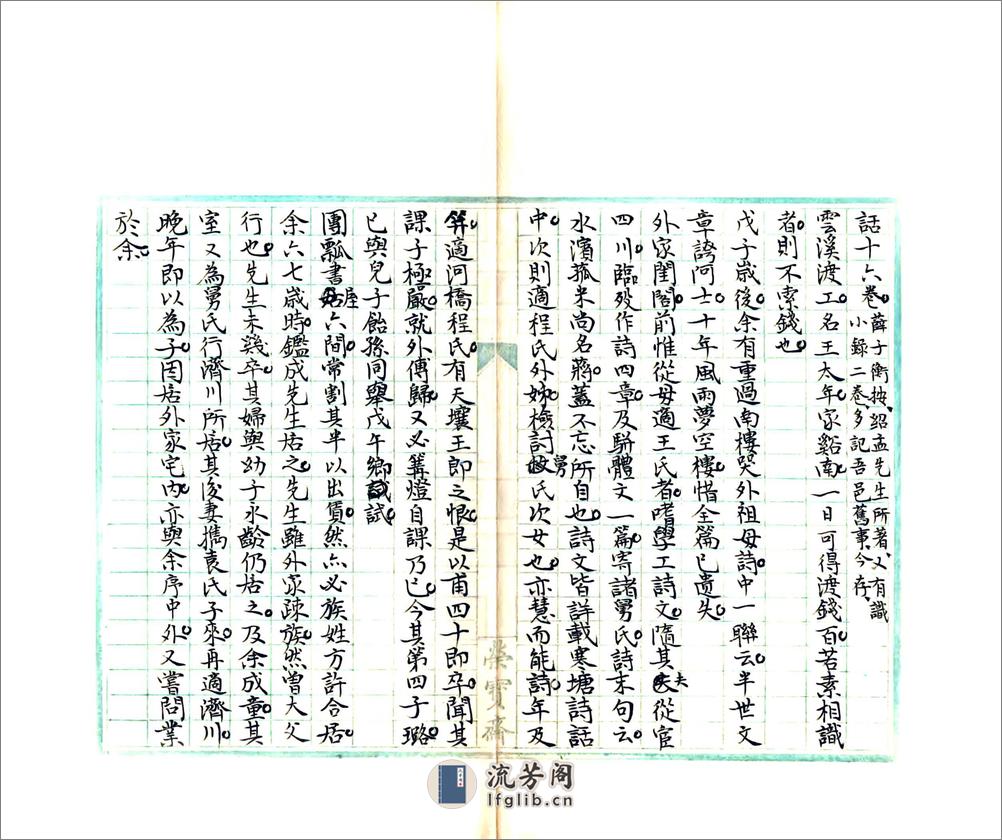 話十六卷。薛子衡按、紹孟先生所著、又有識
小錄二卷多記吾邑舊事今存、
雲溪渡工。名王大年。家谿南。一日可得渡錢百。若素相識
者。則不索錢也。
戊子歲後。余有重過南樓哭外祖母詩。中一聯云。半世文
章誇阿士。十年風雨夢空樓。惜全篇已遺失。
外家閨閣前惟從母適王氏者。嗜學工詩文。隨其夫從宦
四川。臨歿作詩四章及駢體文一篇寄諸舅氏。詩末句云。
水濱菰米尚名蔣。蓋不忘所自也。詩文皆詳載寒塘詩話
中。次則適程氏外姊檢討舅氏次女也。亦慧而能詩。年及
笄。適河橋程氏。有天壤王郎之恨。是以甫四十即卒。聞其
課子極嚴。就外傅歸。又必篝燈自課乃已。今其第四子璐
已與兒子飴孫同舉戊午鄉試
團瓢書屋六間。常割其半以出賃。然亦必族姓方許合居。
余六七歲時。鑑成先生居之。先生雖外家疎族。然曾大父
行也。先生未幾卒。其婦與幼子永齡仍居之。及余成童。其
室又為舅氏行濟川所居。其後妻攜袁氏子來。再適濟川。
晚年即以為子。因居外家宅內。亦與余序中外。又嘗問業
於余。
榮寶齋
流芳阁
lfglib.cn